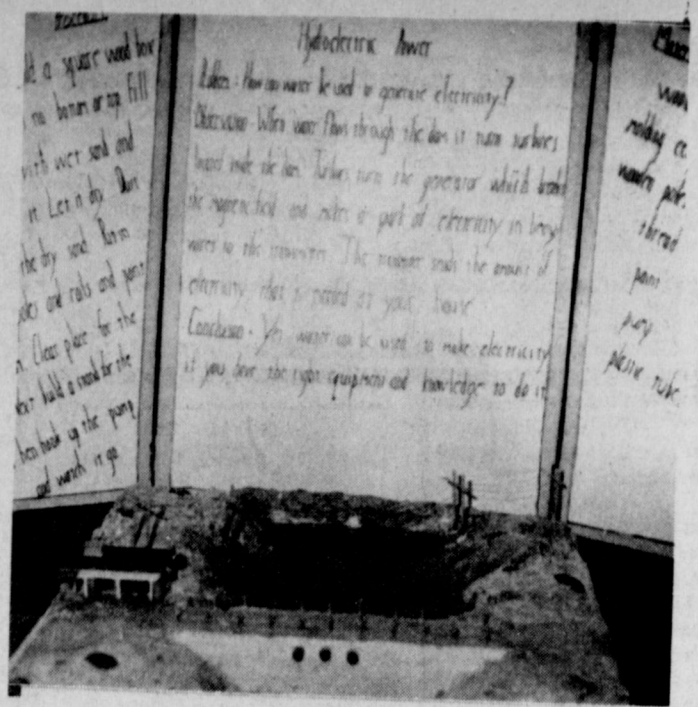 a square wood box
no bottom or top. Fill
with wet sand and
it. Let it dry. Then
the dry sand. Put in
poles and rails and paint
it. Clear place for the
build a stand for the
hook up the pump
and watch it go.
Hydroelectric Power
Problem - How can water be used to generate electricity?
Observation - When water flows through the dam it turns turbines
located inside the dam. Turbines turn the generator which breaks
the magnetic field and makes a part of electricity in heavy
wires to the transmitter. The transmitter sends the amount of
electricity that is needed at your home
Conclusion - Yes water can be used to make electricity
if you have the right equipment and knowledge to do it
molding
wooden poles
thread
paint
pump
plastic tube